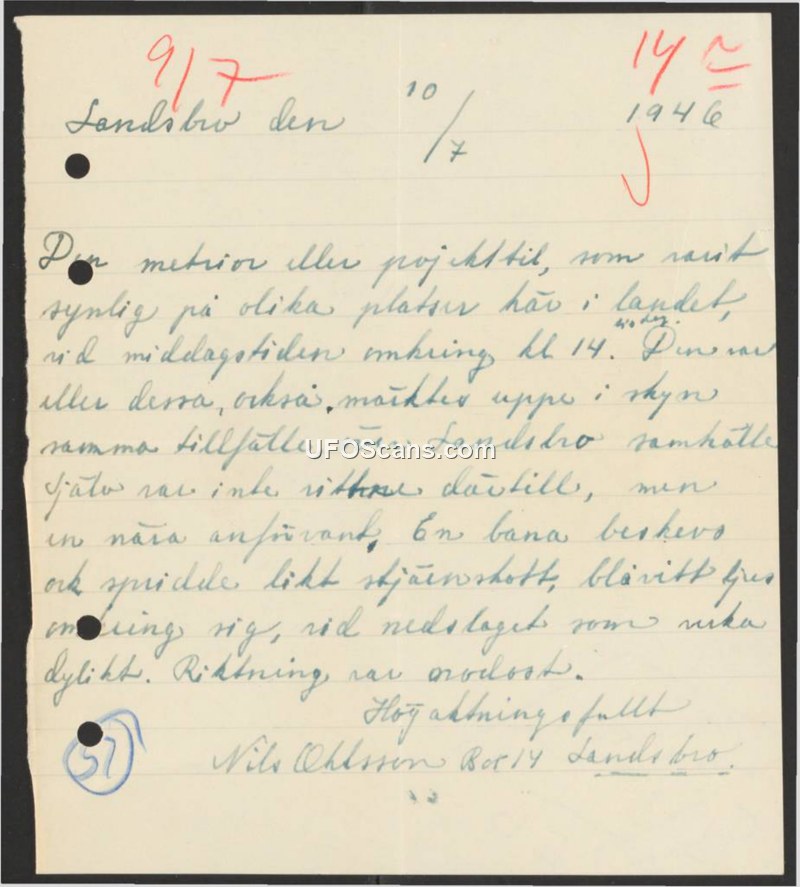 9/7 14
Landsbro den 10/7 1946
Den metrior eller pojekttil, som varit
synlig på olika platser här i landet,
vid middagstiden omkring kl 14. Den var
eller dessa, också, märktes uppe i skyn
samma tillfälle Landsbro samhälle
Själv var inte vittne därtill, men
en nära anförvant, En bana beskevs
ock spridde likt stjärnskott, blåvitt ljus
omkring sig, vid nedslaget som
dylikt. Riktning var nordost.
Högaktningsfullt
Nils Ohlsson Box 14 Landsbro.
57
UFOScans.com